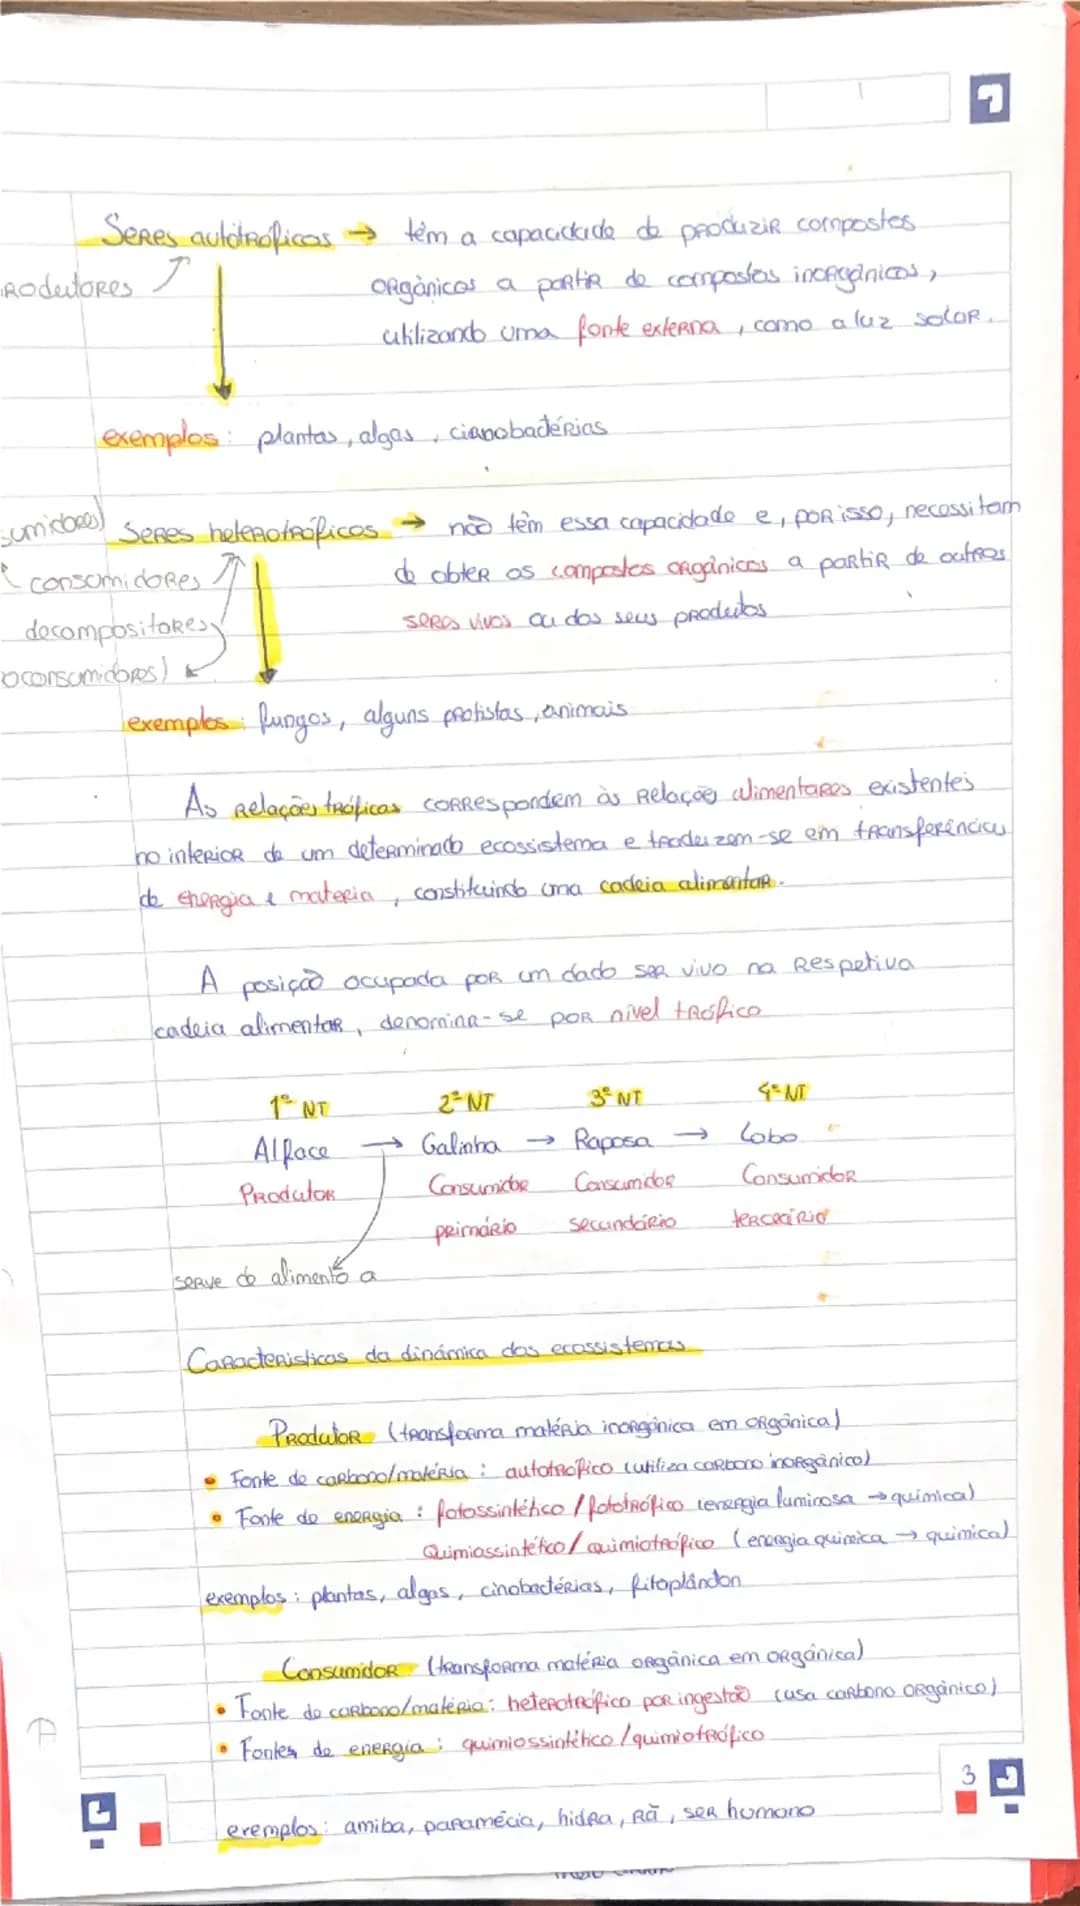 Seres autotróficos → têm a capacidade de produzir compostos
rodutores
orgânicos a partir de compostos inorgânicos,
utilizando uma fonte externa, como a luz solar.
exemplos: plantas, algas, cianobactérias
sumidores)
Seres heterotróficos → não têm essa capacidade e, por isso, necessitam
consumidores
de obter os compostos orgânicos a partir de outros
decompositores
seres vivos ou dos seus produtos
oconsumidores)
exemplos: fungos, alguns protistas, animais
As relações tróficas correspondem às relações alimentares existentes
no interior de um determinado ecossistema e traduzem-se em transferências
de energia e matéria, constituindo uma cadeia alimentar.
A posição ocupada por um dado ser vivo na respetiva
cadeia alimentar, denomina-se por nível trófico
1º NT 2º NT 3º NT 4º NT
Alface → Galinha → Raposa → Lobo
Produtor Consumidor Consumidor Consumidor
primário secundário terceário
serve de alimento a
Características da dinâmica dos ecossistemas
Produtor (transforma matéria inorgânica em orgânica)
• Fonte de carbono/matéria: autotrófico (utiliza carbono inorgânico)
• Fonte de energia: fotossintético/fototrófico (energia luminosa → química)
Quimiossintético/quimiotrófico (energia química → química)
exemplos: plantas, algas, cinobactérias, fitoplândon
Consumidor (transforma matéria orgânica em orgânica)
• Fonte de carbono/matéria: heterotrófico por ingestão (usa carbono orgânico)
• Fontes de energia: quimiossintético/quimiotrófico
3
exemplos: amiba, paramécia, hidra, rã, ser humano